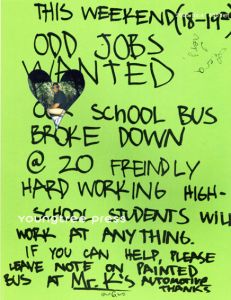 THIS WEEKEND (18-19th)
ODD JOBS
WANTED
OUR SCHOOL BUS
BROKE DOWN
@ 20 FREINDLY
HARD WORKING HIGH-
SCHOOL STUDENTS WILL
younghee press
WORK AT ANYTHING.
IF YOU CAN HELP, PLEASE
LEAVE NOTE ON PAINTED
BUS AT Mr. K's AUTOMOTIVE
THANKS